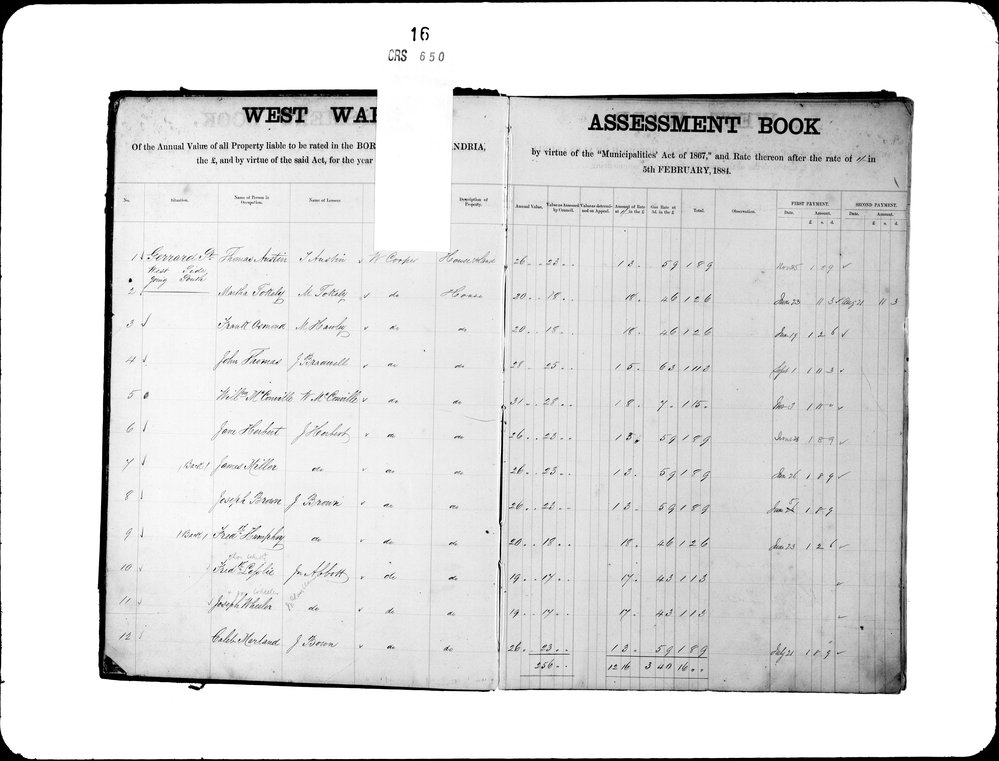 16
CRS 650
WEST WAR
ASSESSMENT BOOK
Of the Annual Value of all Property liable to be rated in the BOR ANDRIA,
the £, and by virtue of the said Act, for the year
by virtue of the "Municipalities' Act of 1867," and Rate thereon after the rate of 1/ in
5th FEBRUARY, 1884.
No. Situation. Name of Person in Occupation. Name of Lessors Description of Property. Annual Value. Value as Assessed by Council. Value as determined on Appeal. Amount of Rate at 1/ in the £ Gas Rate at 3d. in the £ Total. Observation. FIRST PAYMENT. Date. Amount. £ s. d. SECOND PAYMENT. Date. Amount. £ s. d.
1 Gerrard St Thomas Austin T Austin W Cooper House & Land 26 23 1 3 5 9 1 8 9 1 8 9
West Side
going South
2 Martha Tokely M Tokely do House 20 18 18 4 6 1 2 6 June 23 11 3 Aug 21 11 3
3 Frank Osmond M Hawley do do 20 18 18 4 6 1 2 6 June 19 1 2 6
4 John Thomas J Bradwell do do 28 25 1 5 6 3 1 11 3 Sept 1 1 11 3
5 Willm McConville W McConville do do 31 28 1 8 7 1 15 1 15
6 Jane Herbert J Herbert do do 26 23 1 3 5 9 1 8 9 1 8 9
7 (Back) James Miller do do do 26 23 1 3 5 9 1 8 9 June 26 1 8 9
8 Joseph Brown J Brown do do 26 23 1 3 5 9 1 8 9 June 1 8 9
9 (Back) Fredk Humphry do do do 20 18 18 4 6 1 2 6 June 23 1 2 6
10 Fredk Leslie Jno Abbott do do 19 17 17 4 3 1 1 3
11 Joseph Wheeler do do do 19 17 17 4 3 1 1 3
12 Caleb Harland J Brown do do 26 23 1 3 5 9 1 8 9 July 21 1 8 9
256 12 16 3 4 0 16